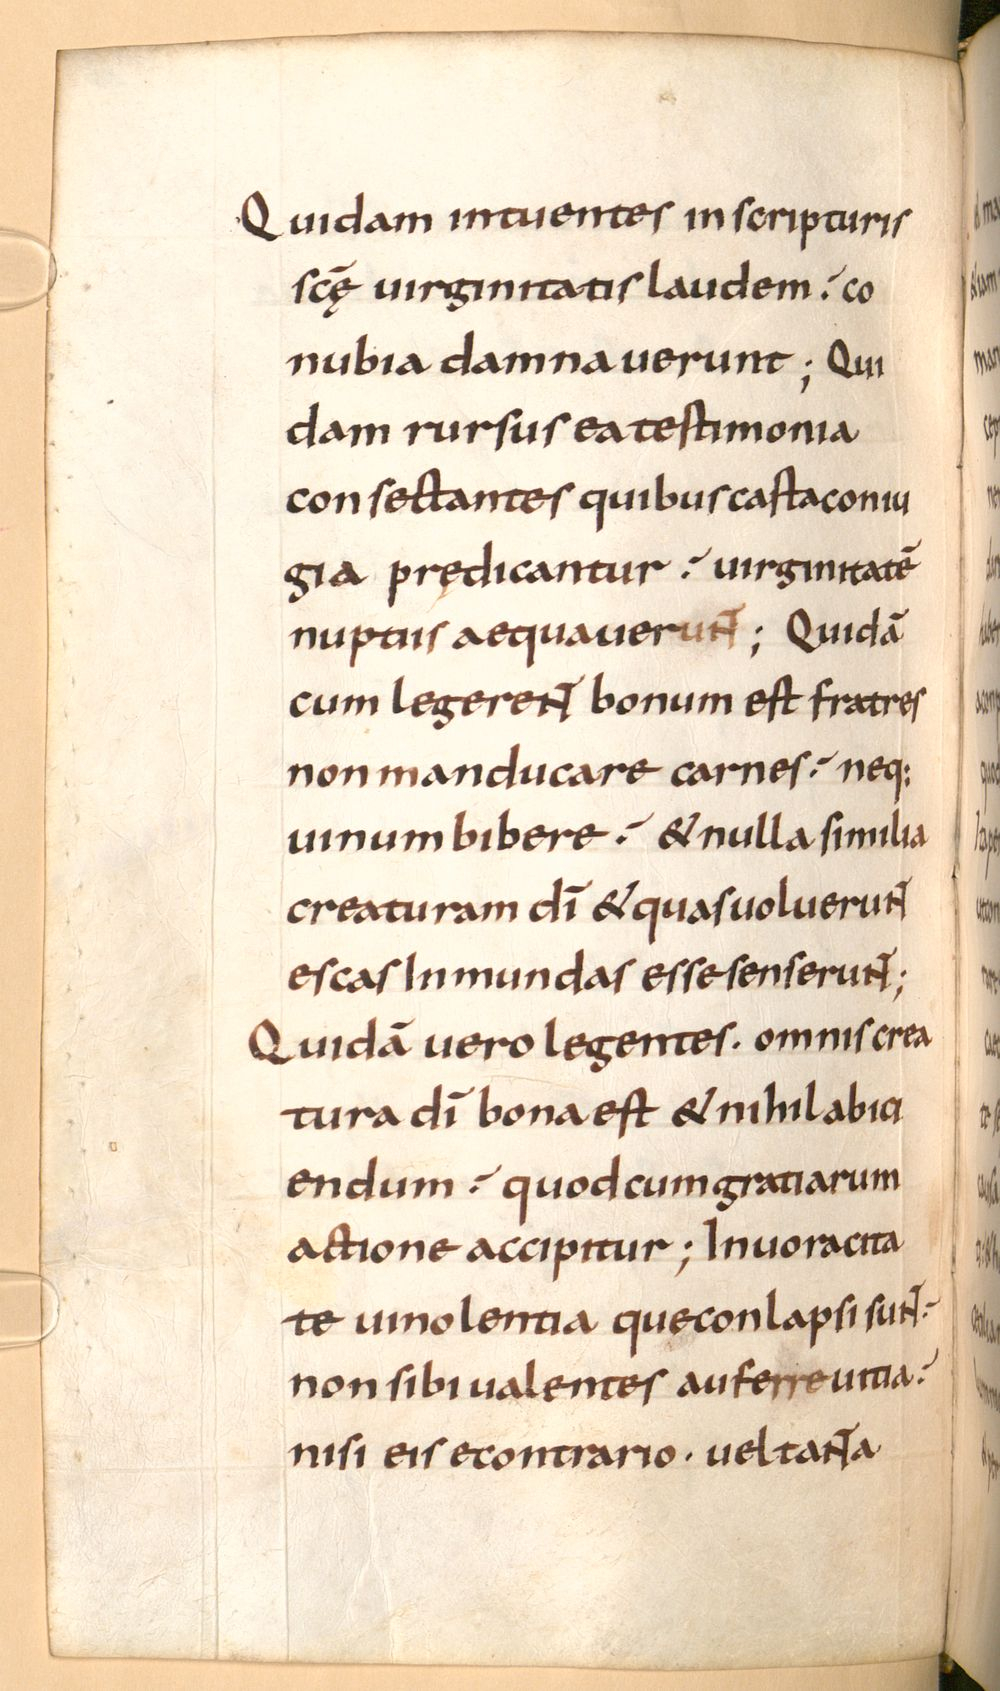 Quidam intuentes in scripturis
scę̄ uirginitatis laudem : co
nubia damnauerunt ; Qui
dam rursus ea testimonia
consectantes quibus casta coniu
gia prędicantur : uirginitatē
nuptiis aequauerunt̄ ; Quidā
cum legerent̄ bonum est fratres
non manducare carnes : neq;
uinum bibere : & nulla similia
creaturam dī & quas uoluerunt̄
escas Inmundas esse senserunt̄ ;
Quidā uero legentes . omnis crea
tura dī bona est & nihil abici
endum : quod cum gratiarum
actione accipitur ; In uoracita
te uinolentia que conlapsi sunt̄ :
non sibi ualentes auferre uitia :
nisi eis econtrario . uel tanta